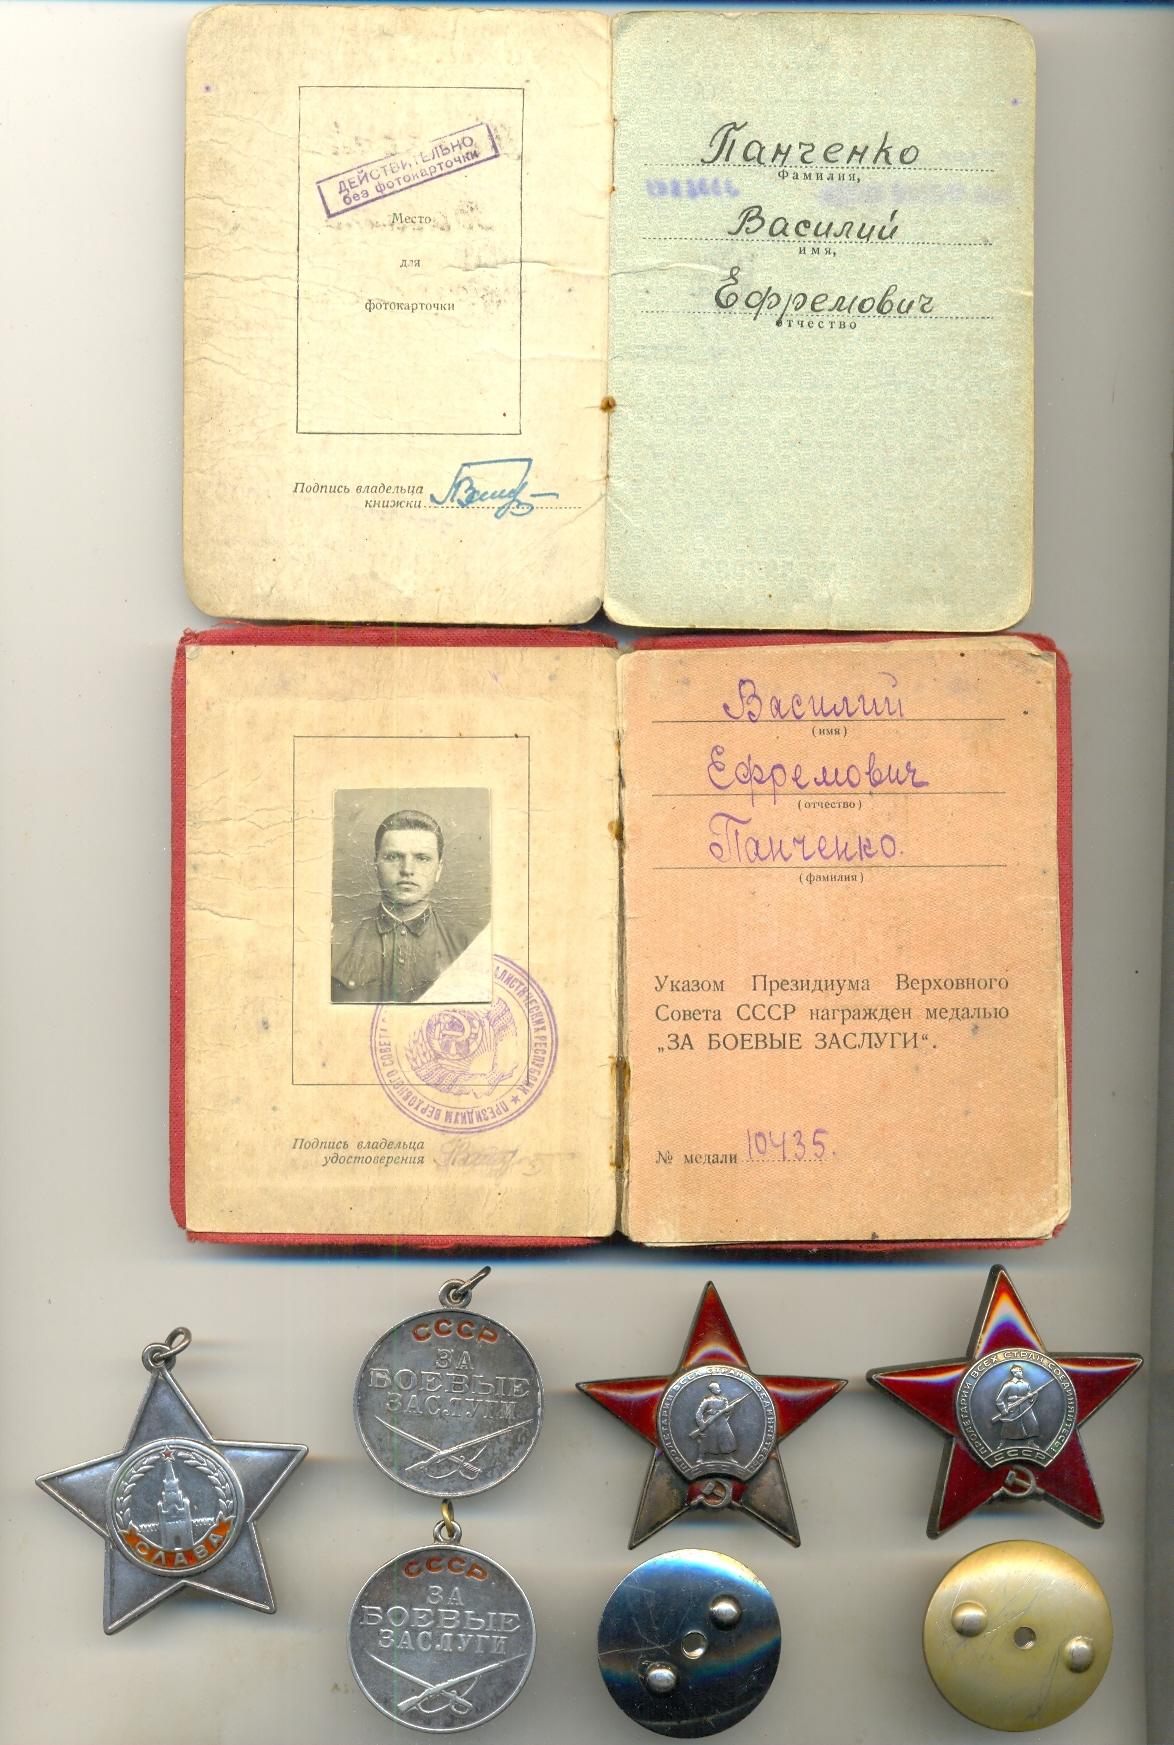 ДЕЙСТВИТЕЛЬНО
без фотокарточки
Место
для
фотокарточки
Подпись владельца
книжки
Панченко
Фамилия,
Василий
имя,
Ефремович
отчество
Подпись владельца
удостоверения
ПРЕЗИДИУМ ВЕРХОВНОГО СОВЕТА
РЕСПУБЛИК
Василий
(имя)
Ефремович
(отчество)
Панченко.
(фамилия)
Указом Президиума Верховного
Совета СССР награжден медалью
„ЗА БОЕВЫЕ ЗАСЛУГИ“.
№ медали 10435.
СЛАВА
СССР
ЗА
БОЕВЫЕ
ЗАСЛУГИ
СССР
ЗА
БОЕВЫЕ
ЗАСЛУГИ
ПРОЛЕТАРИИ ВСЕХ СТРАН, СОЕДИНЯЙТЕСЬ!
ПРОЛЕТАРИИ ВСЕХ СТРАН, СОЕДИНЯЙТЕСЬ!
СССР